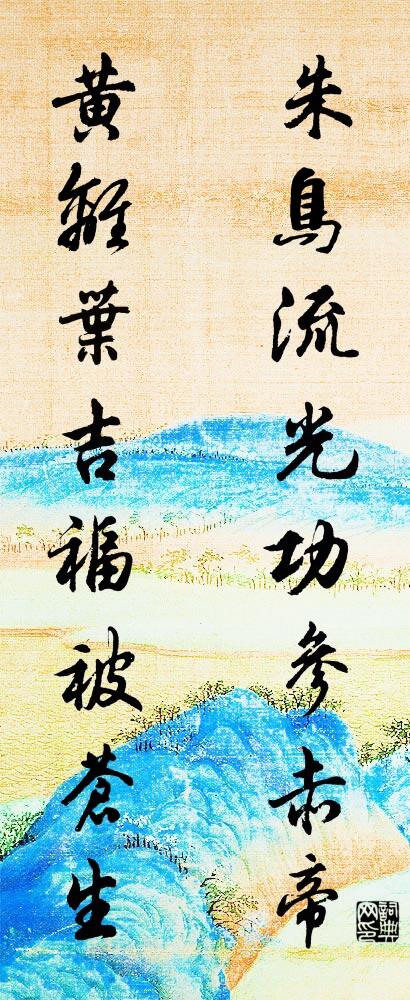 朱鳥流光功參赤帝
黃離葉吉福被蒼生
詞典网印